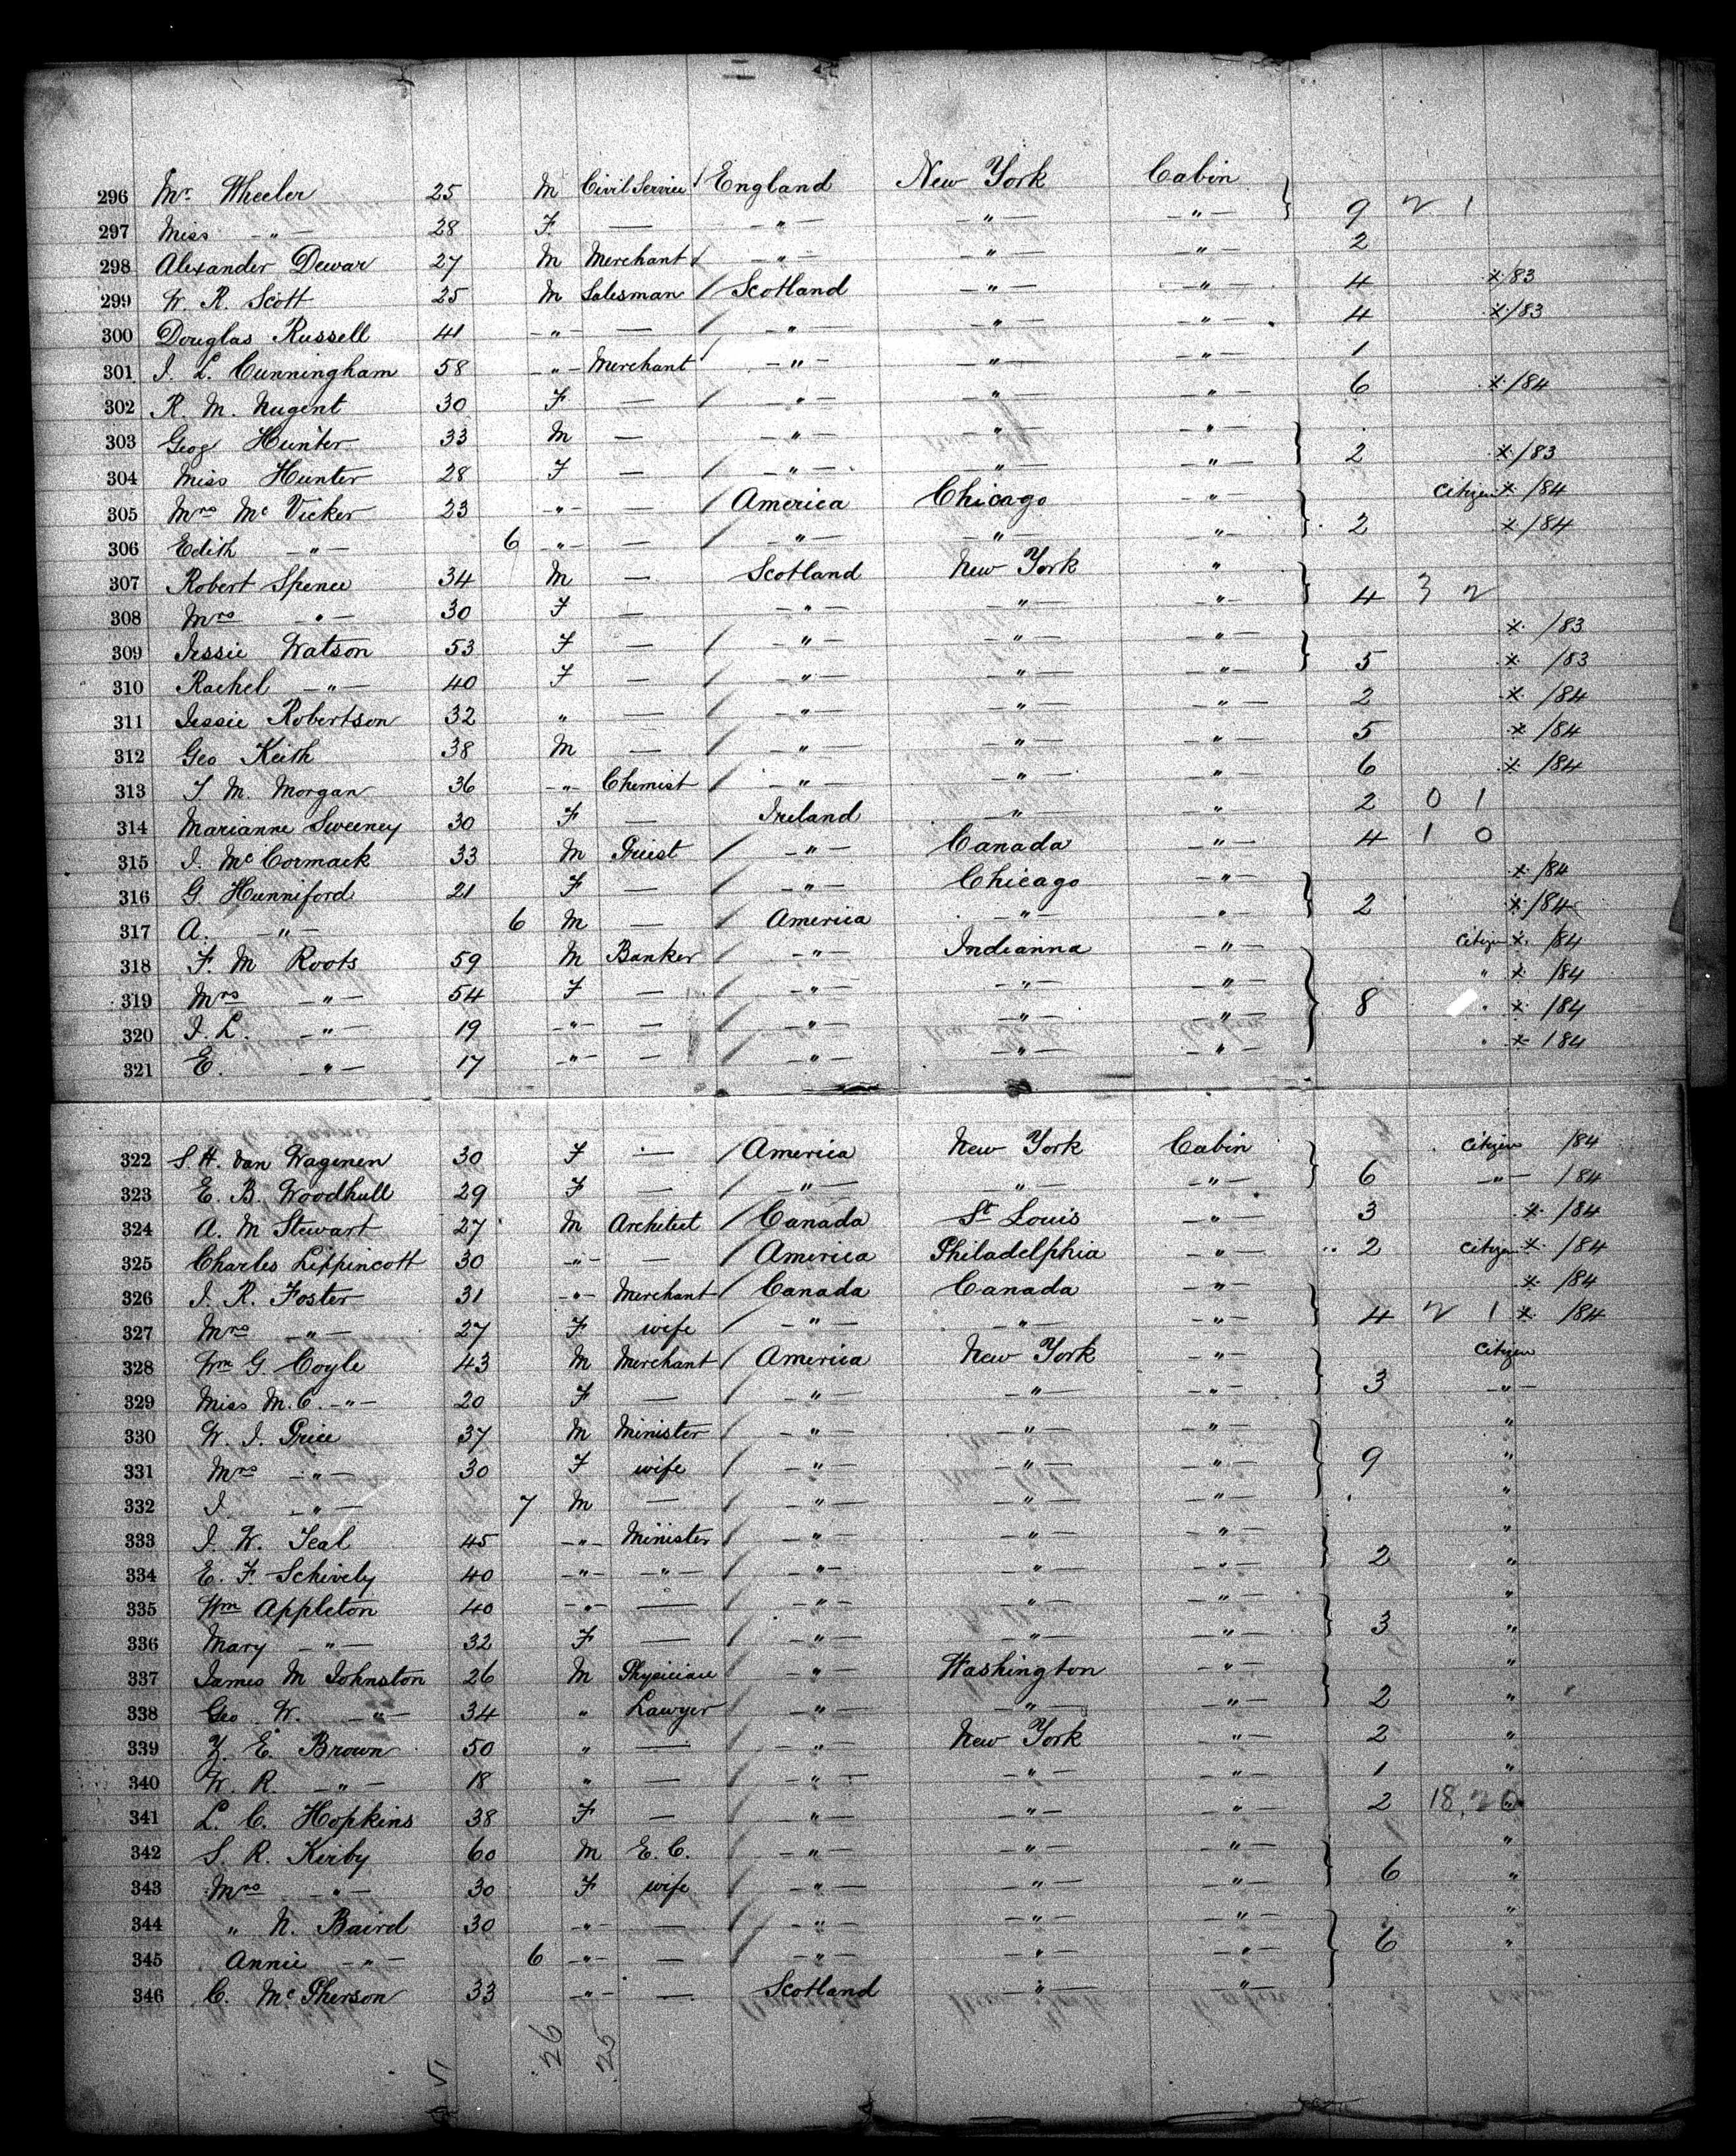 296 Mr. Wheeler 25 M Civil Service / England New York Cabin } 9 2 1
297 Miss -"- 28 F — -"- -"- -"-
298 Alexander Dewar 27 M Merchant / -"- -"- -"- 2
299 W. R. Scott 25 M Salesman / Scotland -"- -"- 4 x/83
300 Douglas Russell 41 -"- — / -"- -"- -"- 4 x/83
301 J. L. Cunningham 58 -"- Merchant / -"- -"- -"- 1
302 R. M. Nugent 30 F — / -"- -"- -"- 6 x/84
303 Geog Hunter 33 M — -"- -"- -"-
304 Miss Hunter 28 F — / -"- -"- -"- } 2 x/83
305 Mrs Mc Vicker 23 -"- — / America Chicago " Citizen x /84
306 Edith -"- 6 -"- — / -"- -"- -"- } 2 x /84
307 Robert Spence 34 M — Scotland New York "
308 Mrs -"- 30 F — -"- -"- -"- } 4 3 2
309 Jessie Watson 53 F — / -"- -"- -"- x /83
310 Rachel -"- 40 F — / -"- -"- -"- } 5 x /83
311 Jessie Robertson 32 " — / -"- -"- -"- 2 x /84
312 Geo Keith 38 M — / -"- -"- -"- 5 x /84
313 T. M. Morgan 36 -"- Chemist / -"- -"- -"- 6 x /84
314 Marianne Sweeney 30 F — Ireland -"- -"- 2 0 1
315 J. McCormack 33 M Priest / -"- Canada -"- 4 1 0
316 G. Hunniford 21 F — / -"- Chicago -"- x /84
317 A. -"- 6 M — / America -"- -"- } 2 x /84
318 F. M Roots 59 M Banker / -"- Indianna -"- Citizen x /84
319 Mrs -"- 54 F — / -"- -"- -"- " x /84
320 J. L. -"- 19 -"- — / -"- -"- -"- } 8 " x /84
321 E. -"- 17 -"- — / -"- -"- -"- " x /84
322 S. H. Van Wagenen 30 F — / America New York Cabin Citizen /84
323 E. B. Woodhull 29 F — / -"- -"- -"- } 6 -"- /84
324 A. M Stewart 27 M Architect / Canada St Louis -"- 3 x /84
325 Charles Lippincott 30 -"- — America Philadelphia -"- 2 Citizen x /84
326 J. R. Foster 31 -"- Merchant / Canada Canada -"- x /84
327 Mrs -"- 27 F wife / -"- -"- -"- } 4 2 1 x /84
328 Wm G. Coyle 43 M Merchant / America New York -"- Citizen
329 Miss M. C. -"- 20 F — / -"- -"- -"- } 3 -"-
330 W. J. Price 37 M Minister / -"- -"- -"- "
331 Mrs -"- 30 F wife / -"- -"- -"- } 9 "
332 J. -"- 7 M — / -"- -"- -"- "
333 J. W. Teal 45 -"- Minister / -"- -"- -"- "
334 E. F. Schively 40 -"- -"- / -"- -"- -"- } 2 "
335 Wm Appleton 40 -"- — / -"- -"- -"- "
336 Mary -"- 32 F — / -"- -"- -"- } 3 "
337 James M Johnston 26 M Physician / -"- Washington -"- "
338 Geo W. -"- 34 " Lawyer / -"- -"- -"- } 2 "
339 Z. E. Brown 50 " — / -"- New York -"- 2 "
340 W. R. -"- 18 " — / -"- -"- -"- 1 "
341 L. C. Hopkins 38 F — / -"- -"- -"- 2 18.20
342 S. R. Kirby 60 M E. C. / -"- -"- -"- "
343 Mrs -"- 30 F wife / -"- -"- -"- } 6 "
344 " N. Baird 30 -"- — / -"- -"- -"- "
345 Annie -"- 6 -"- — / -"- -"- -"- } 6 "
346 C. McPherson 33 -"- — Scotland -"- -"-
26 25